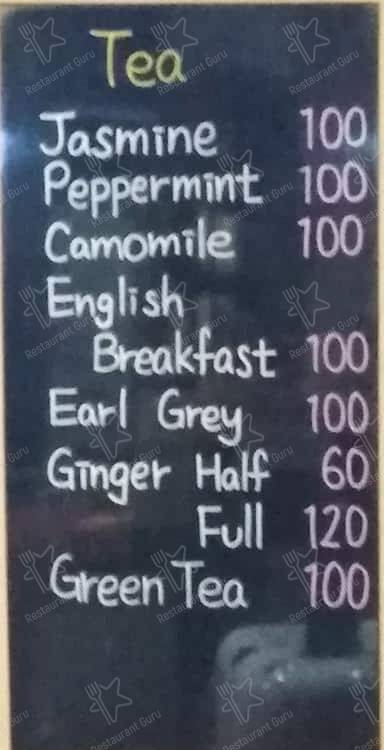 Tea
Jasmine 100
Peppermint 100
Camomile 100
English
Breakfast 100
Earl Grey 100
Ginger Half 60
Full 120
Green Tea 100
Restaurant Guru